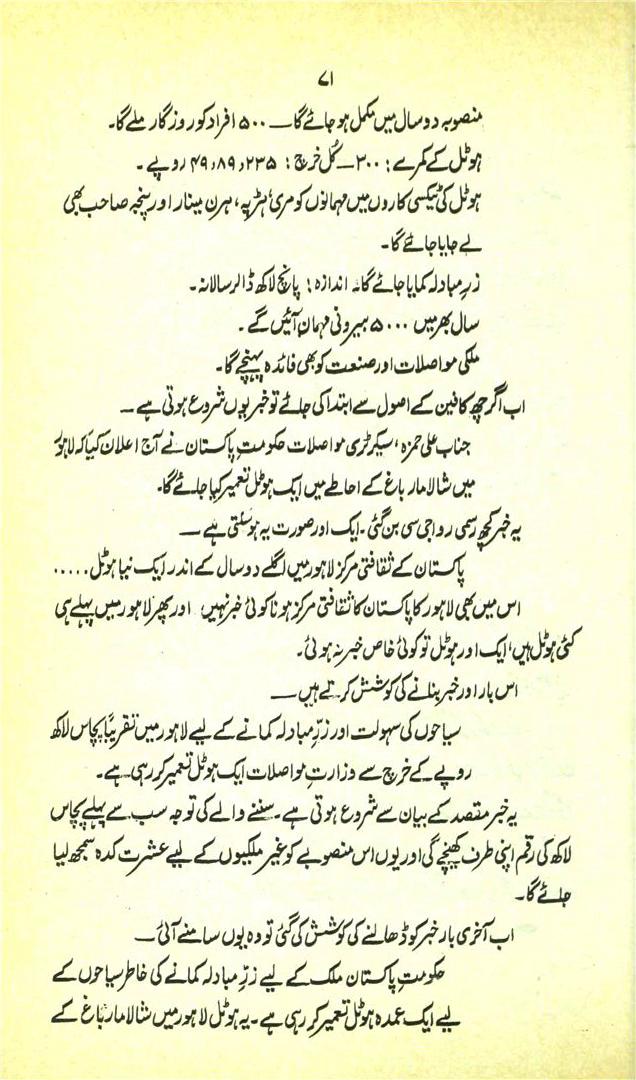 ۷۱
منصوبہ دو سال میں مکمل ہو جائے گا — ۵۰۰ افراد کو روزگار ملے گا۔
ہوٹل کے کمرے: ۳۰۰ — کُل خرچ: ۴۹،۸۹،۲۳۵ روپے۔
ہوٹل کی ٹیکسی کاروں میں مہمانوں کو مری، ہڑپہ، ہرن مینار اور پنجہ صاحب بھی
لے جایا جائے گا۔
زرِ مبادلہ کمایا جائے گا۔ اندازہ: پانچ لاکھ ڈالر سالانہ۔
سال بھر میں ۵۰۰۰ بیرونی مہمان آئیں گے۔
ملکی مواصلات اور صنعت کو بھی فائدہ پہنچے گا۔
اب اگر چھ کافین کے اصول سے ابتدا کی جائے تو خبر یوں شروع ہوتی ہے —
جناب علی حمزہ، سیکرٹری مواصلات حکومتِ پاکستان نے آج اعلان کیا کہ لاہور
میں شالامار باغ کے احاطے میں ایک ہوٹل تعمیر کیا جائے گا۔
یہ خبر کچھ رسمی رواجی سی بن گئی۔ ایک اور صورت یہ ہو سکتی ہے —
پاکستان کے ثقافتی مرکز لاہور میں اگلے دو سال کے اندر ایک نیا ہوٹل.....
اس میں بھی لاہور کا پاکستان کا ثقافتی مرکز ہونا کوئی خبر نہیں اور پھر لاہور میں پہلے ہی
کئی ہوٹل ہیں، ایک اور ہوٹل تو کوئی خاص خبر نہ ہوئی۔
اس بار اور خبر بنانے کی کوشش کرتے ہیں —
سیاحوں کی سہولت اور زرِّ مبادلہ کمانے کے لیے لاہور میں تقریباً پچاس لاکھ
روپے کے خرچ سے وزارتِ مواصلات ایک ہوٹل تعمیر کر رہی ہے۔
یہ خبر مقصد کے بیان سے شروع ہوتی ہے۔ سننے والے کی توجہ سب سے پہلے پچاس
لاکھ کی رقم اپنی طرف کھینچے گی اور یوں اس منصوبے کو غیر ملکیوں کے لیے عشرت کدہ سمجھ لیا
جائے گا۔
اب آخری بار خبر کو ڈھالنے کی کوشش کی گئی تو وہ یوں سامنے آئی —
حکومتِ پاکستان ملک کے لیے زرِّ مبادلہ کمانے کی خاطر سیاحوں کے
لیے ایک عمدہ ہوٹل تعمیر کر رہی ہے۔ یہ ہوٹل لاہور میں شالامار باغ کے